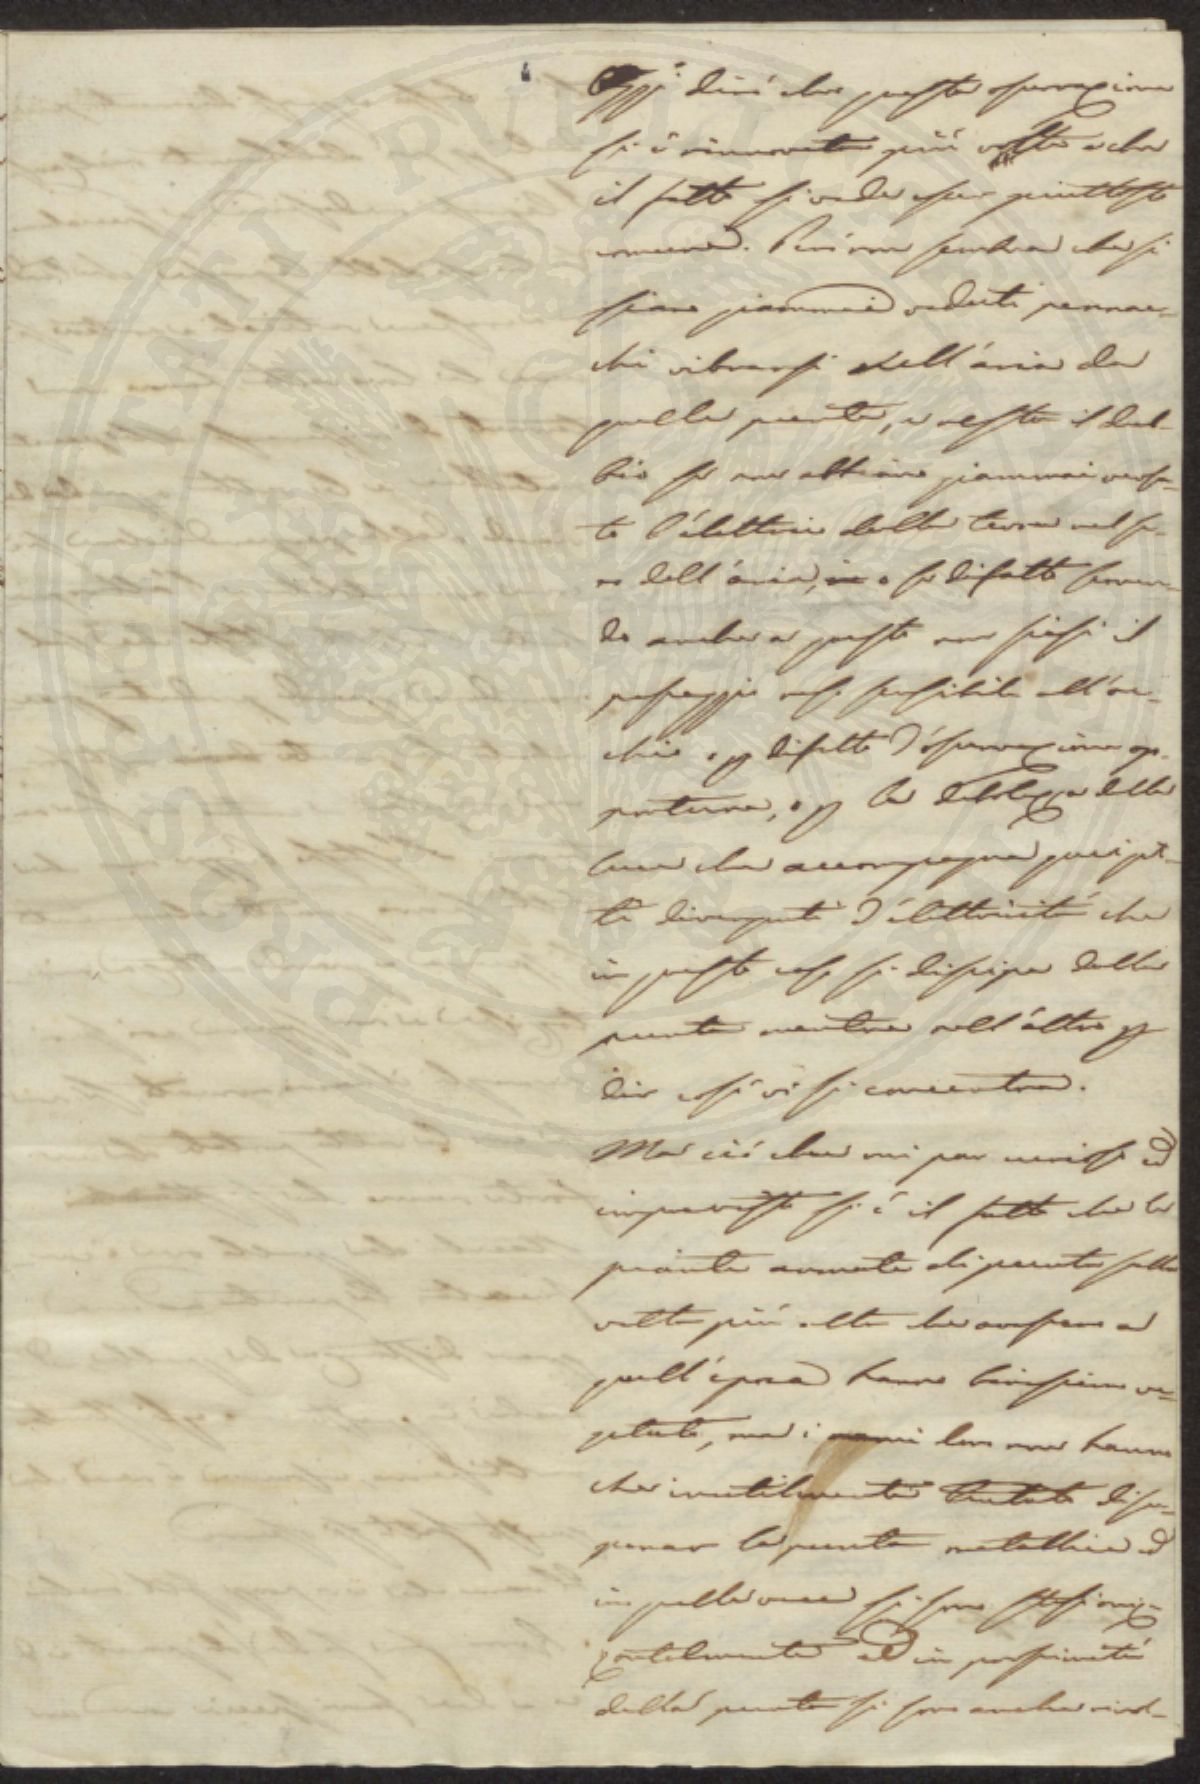 Oggi dirò che questa osservazione
si è rinnovata più volte e che
il fatto si vede esser piuttosto
comune. Però non sembra che si
siano giammai veduti pennac-
chi vibrarsi nell'aria da
quelle punte, e resta il dub-
bio se non abbiano giammai versa-
to l'elettrico della terra nel se-
no dell'aria, o se difatto serven-
do anche a questo non siasi il
passaggio reso sensibile all'oc-
chio o p difetto d'osservazione op-
portuna, o p la debolezza della
luce che accompagna que' get-
ti divergenti d'elettricità che
in questo caso si dissipa dalla
punta mentre nell'altro p
dir così vi si concentra.
Ma ciò che mi par curioso ed
imprevisto si è il fatto che le
piante armate di punte
volte più alte che avessero a
quell'epoca hanno benissimo ve-
getato, ma i rami loro non hanno
che inutilmente tentato di su-
perare la punta metallica ed
in quella vece si sono stesi oriz-
zontalmente ed in prossimità
della punta si sono anche rivol-
PVBLICAE
PROSPERITATI